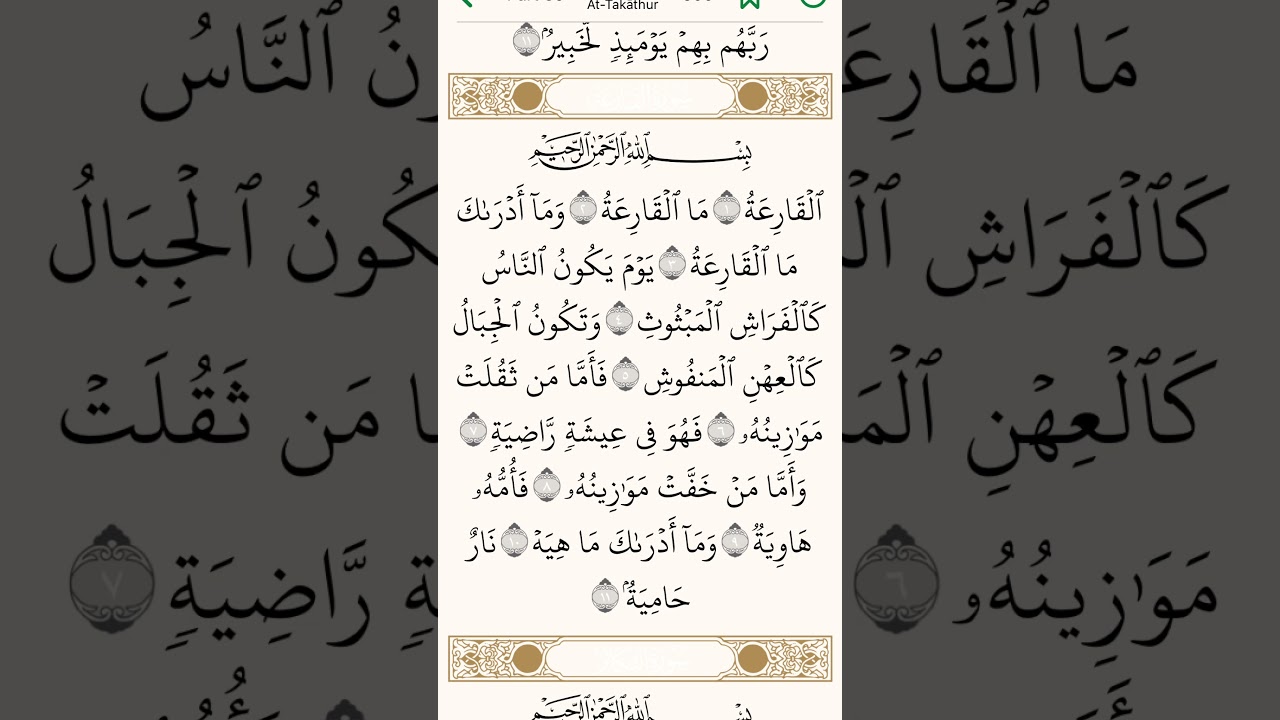 At-Takāthur
رَبَّهُم بِهِمْ يَوْمَئِذٍ لَّخَبِيرٌۢ ١١
سورة القارعة
بِسْمِ ٱللَّهِ ٱلرَّحْمَٰنِ ٱلرَّحِيمِ
ٱلْقَارِعَةُ ١ مَا ٱلْقَارِعَةُ ٢ وَمَآ أَدْرَىٰكَ
مَا ٱلْقَارِعَةُ ٣ يَوْمَ يَكُونُ ٱلنَّاسُ
كَٱلْفَرَاشِ ٱلْمَبْثُوثِ ٤ وَتَكُونُ ٱلْجِبَالُ
كَٱلْعِهْنِ ٱلْمَنفُوشِ ٥ فَأَمَّا مَن ثَقُلَتْ
مَوَٰزِينُهُۥ ٦ فَهُوَ فِى عِيشَةٍ رَّاضِيَةٍ ٧
وَأَمَّا مَنْ خَفَّتْ مَوَٰزِينُهُۥ ٨ فَأُمُّهُۥ
هَاوِيَةٌ ٩ وَمَآ أَدْرَىٰكَ مَا هِيَهْ ١٠ نَارٌ
حَامِيَةٌۢ ١١
سورة التكاثر
بِسْمِ ٱللَّهِ ٱلرَّحْمَٰنِ ٱلرَّحِيمِ